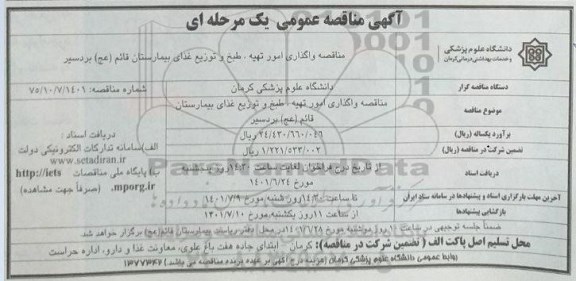 آگهی مناقصه عمومی یک مرحله ای
دانشگاه علوم پزشکی
و خدمات بهداشتی درمانی کرمان
مناقصه واگذاری امور تهیه ، طبخ و توزیع غذای بیمارستان قائم (عج) بردسیر
دستگاه مناقصه گزار
دانشگاه علوم پزشکی کرمان
شماره مناقصه: ۷۵/۱۰/۷/۱۴۰۱
موضوع مناقصه
مناقصه واگذاری امور تهیه ، طبخ و توزیع غذای بیمارستان
قائم (عج) بردسیر
برآورد یکساله (ریال)
۲۴/۴۳۰/۶۶۰/۰۴۶ ریال
تضمین شرکت در مناقصه (ریال)
۱/۲۲۱/۵۳۳/۰۰۲ ریال
دریافت اسناد :
الف)سامانه تدارکات الکترونیکی دولت
www.setadiran.ir
ب) پایگاه ملی مناقصات http://iets
.mporg.ir (صرفاً جهت مشاهده)
دریافت اسناد
از تاریخ درج فراخوان لغایت ساعت ۱۴:۳۰ روز پنجشنبه
مورخ ۱۴۰۱/۶/۲۴
آخرین مهلت بارگزاری اسناد و پیشنهادها در سامانه ستاد ایران
تا ساعت ۱۴:۳۰ روز شنبه مورخ ۱۴۰۱/۷/۹
بازگشایی پیشنهادها
از ساعت ۱۱ روز یکشنبه مورخ ۱۴۰۱/۷/۱۰
ضمناً جلسه توجیهی در ساعت ۱۰ روز دوشنبه مورخ در محل دفتر ریاست بیمارستان قائم(عج) برگزار خواهد شد
محل تسلیم اصل پاکت الف ( تضمین شرکت در مناقصه): کرمان ابتدای جاده هفت باغ علوی، معاونت غذا و دارو، اداره حراست
روابط عمومی دانشگاه علوم پزشکی کرمان (هزینه درج آگهی بر عهده برنده مناقصه می باشد) ۱۳۷۷۳۴۶